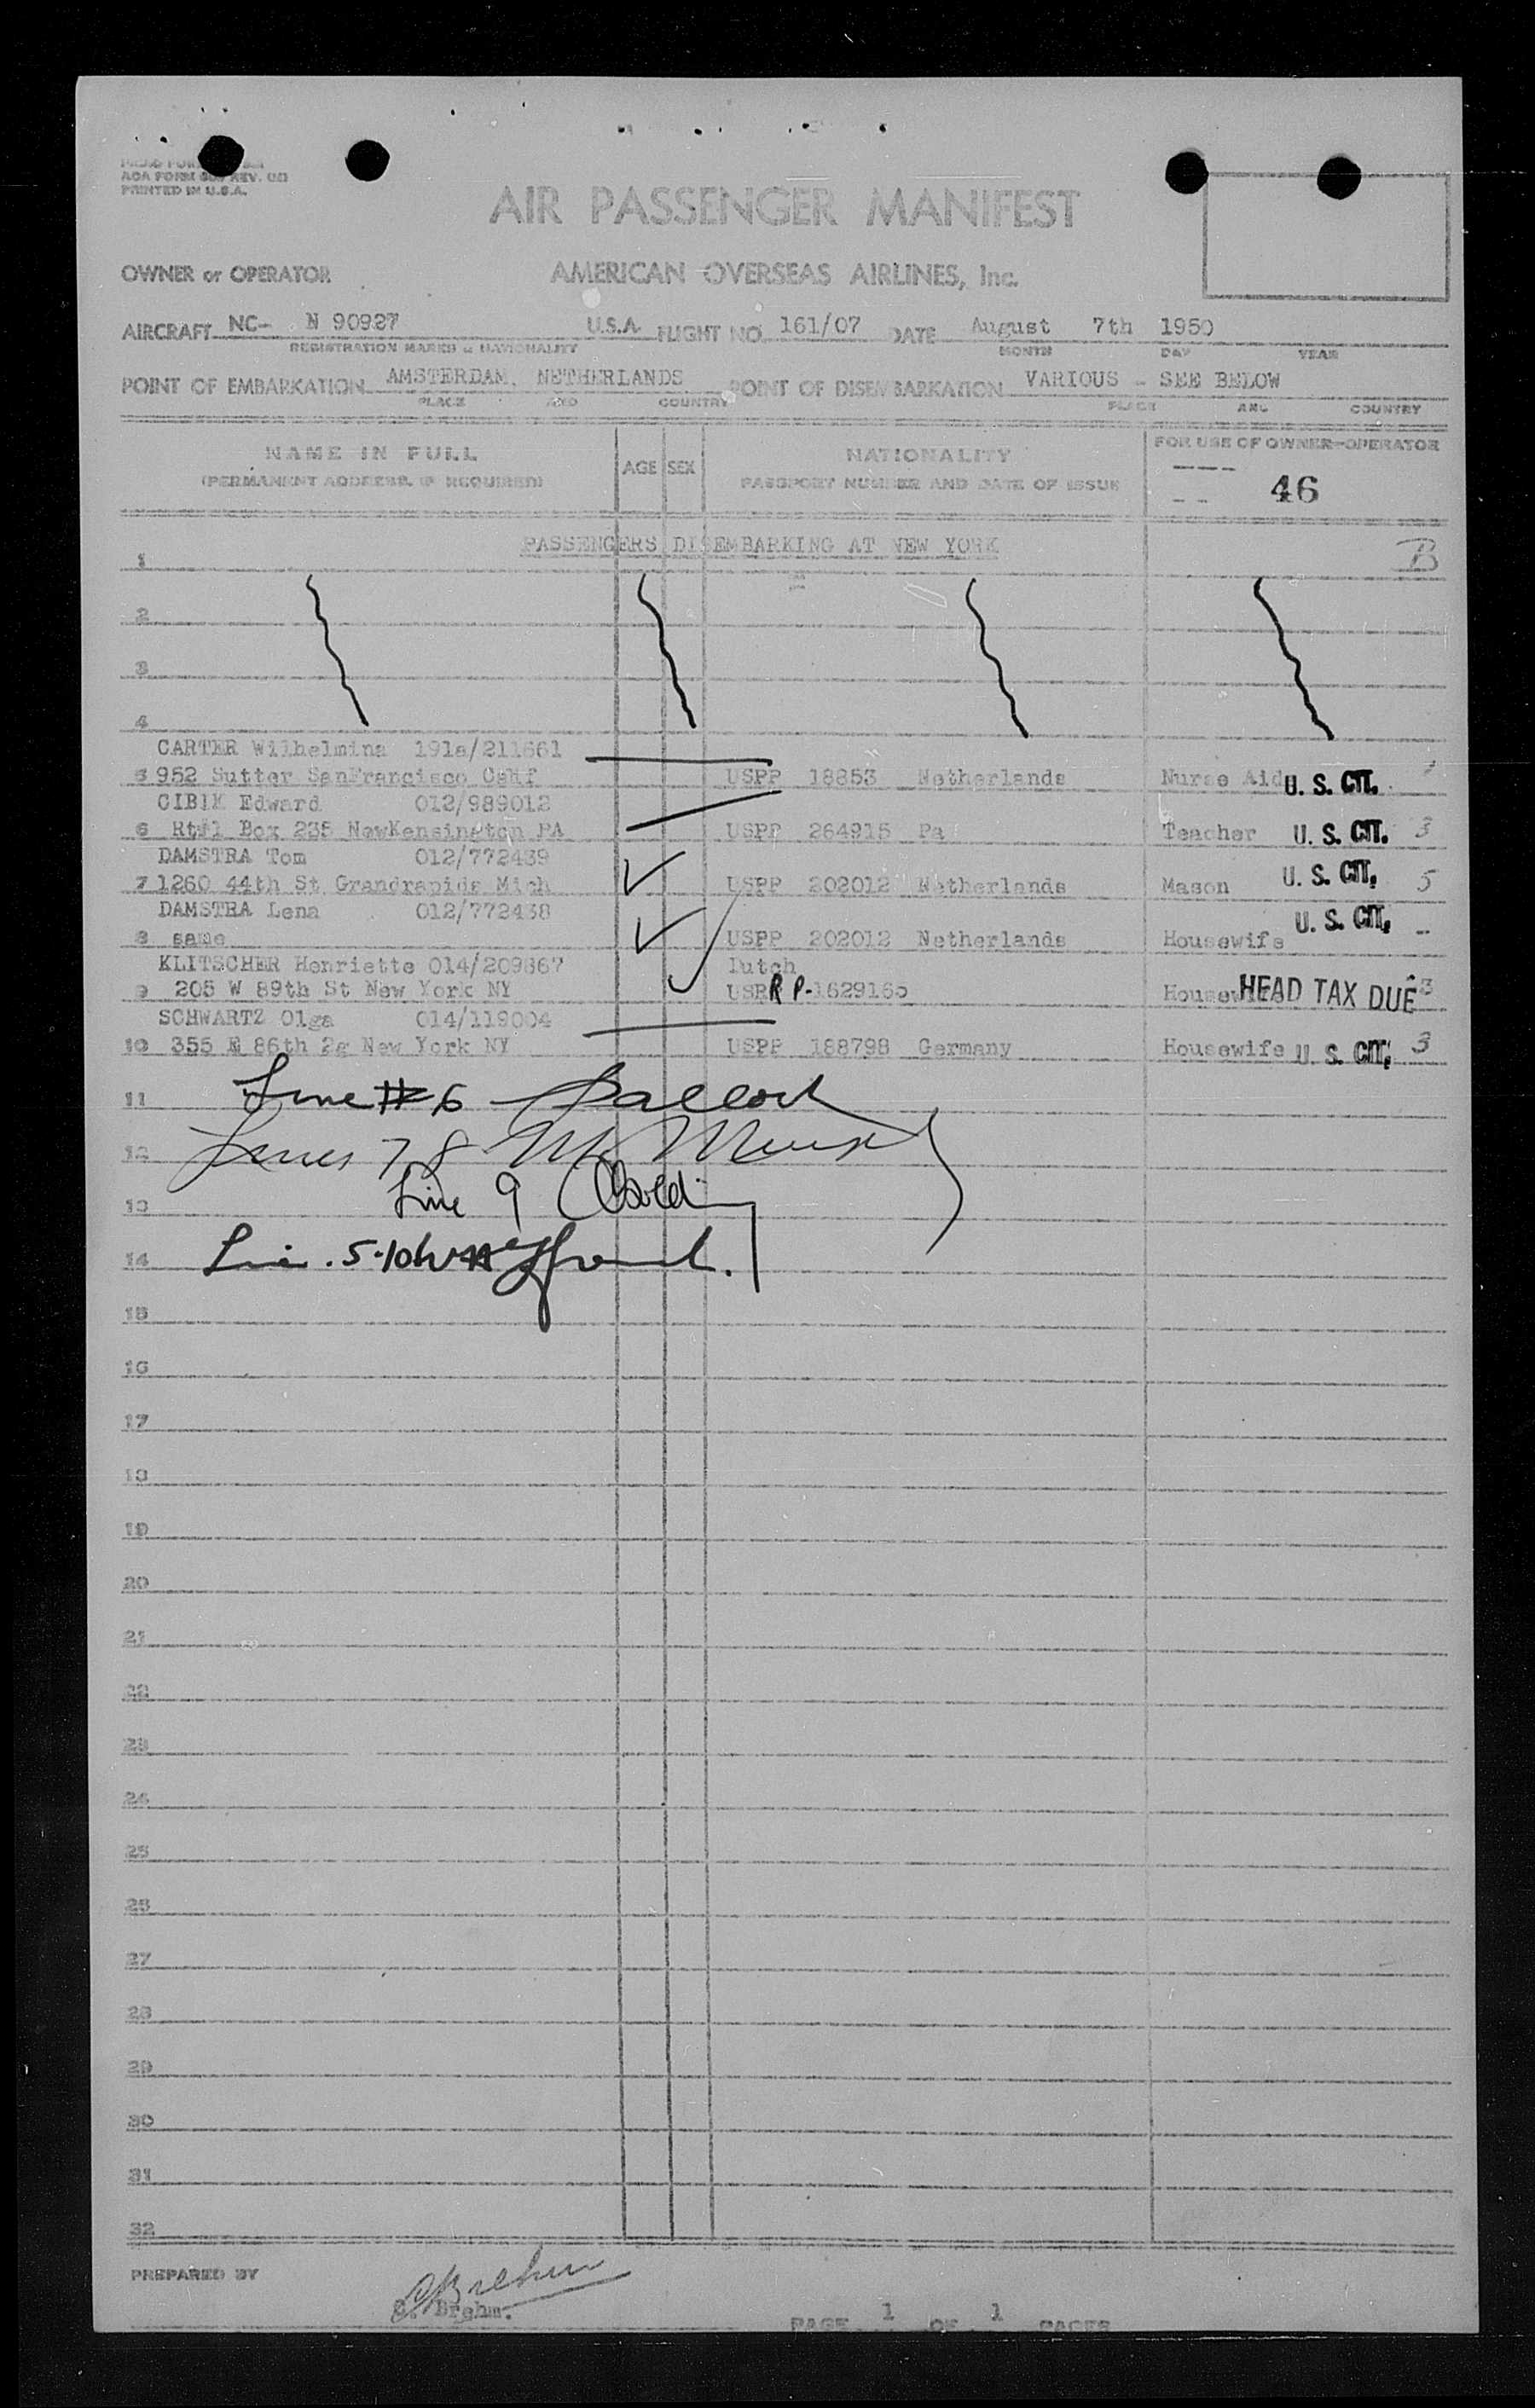 PRINTED IN U.S.A.
AIR PASSENGER MANIFEST
OWNER or OPERATOR AMERICAN OVERSEAS AIRLINES, Inc.
AIRCRAFT NC- N 90927 U.S.A. FLIGHT NO. 161/07 DATE August 7th 1950
REGISTRATION MARKS & NATIONALITY MONTH DAY YEAR
POINT OF EMBARKATION AMSTERDAM, NETHERLANDS POINT OF DISEMBARKATION VARIOUS - SEE BELOW
PLACE AND COUNTRY PLACE AND COUNTRY
NAME IN FULL AGE SEX NATIONALITY FOR USE OF OWNER-OPERATOR
(PERMANENT ADDRESS, IF REQUIRED) PASSPORT NUMBER AND DATE OF ISSUE 46
PASSENGERS DISEMBARKING AT NEW YORK B
1
2
3
4
CARTER Wilhelmina 191a/211661
5 952 Sutter SanFrancisco Calif USPP 18853 Netherlands Nurse Aid U. S. CIT.
Edward 012/989012
6 Rt#1 Box 235 NewKensington PA USPP 264915 Pa Teacher U. S. CIT. 3
DAMSTRA Tom 012/772439
7 1260 44th St Grandrapids Mich USPP 202012 Netherlands Mason U. S. CIT. 5
DAMSTRA Lena 012/772438
8 same USPP 202012 Netherlands Housewife U. S. CIT. -
KLITSCHER Henriette 014/209867 Dutch
9 205 W 89th St New York NY USRRP-1629165 Housewife HEAD TAX DUE 3
SCHWARTZ Olga 014/119004
10 355 E 86th 2g New York NY USPP 188798 Germany Housewife U. S. CIT. 3
11 Line #6
12 Lines 7 8
13 Line 9
14 5-10
15
16
17
18
19
20
21
22
23
24
25
26
27
28
29
30
31
32
PREPARED BY
C. Brehm.
PAGE 1 OF 1 PAGES